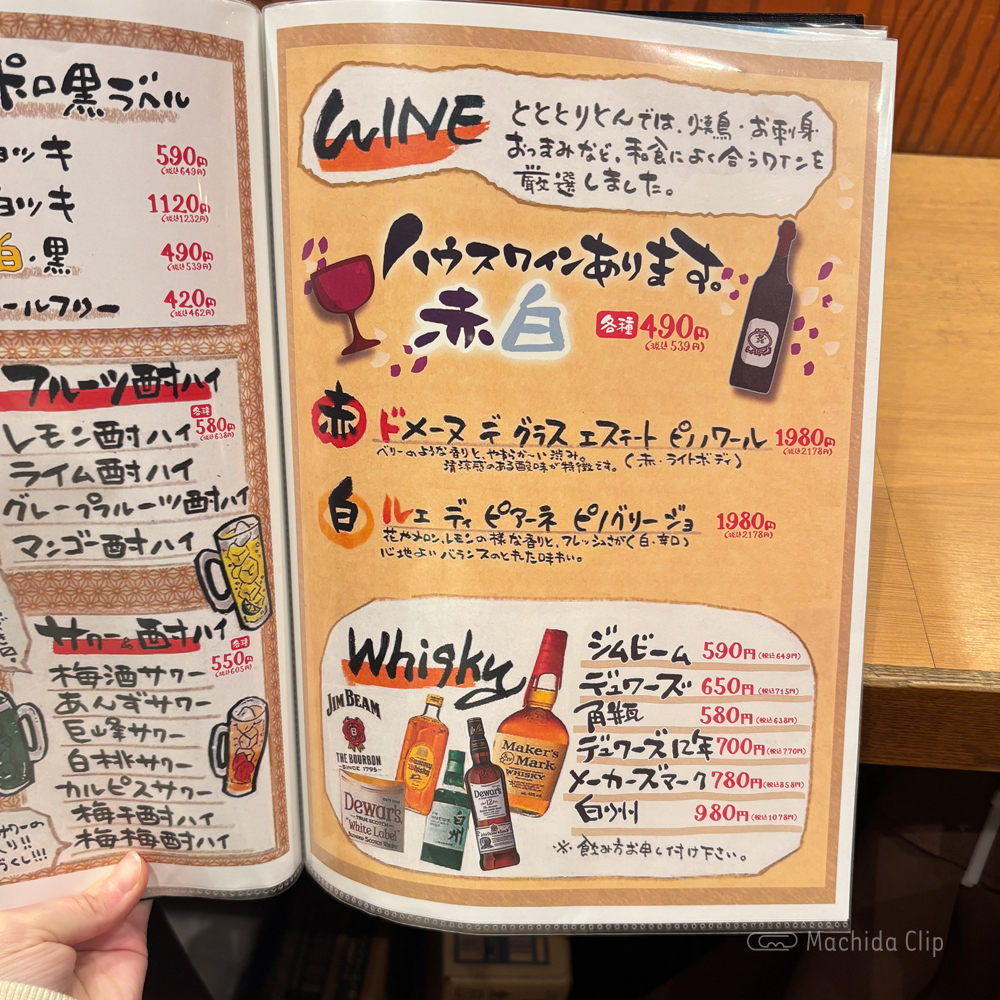 ポロ黒ラベル
ョッキ
590円
(税込649円)
ョッキ
1120円
(税込1232円)
白・黒
490円
(税込539円)
ールフリー
420円
(税込462円)
フルーツ酎ハイ
各種
580円
(税込638円)
レモン酎ハイ
ライム酎ハイ
グレープフルーツ酎ハイ
マンゴー酎ハイ
サワー&酎ハイ
各種
550円
(税込605円)
梅酒サワー
あんずサワー
巨峰サワー
白桃サワー
カルピスサワー
梅干酎ハイ
梅梅酎ハイ
サワーの
くし!!!
WINE
とととりとんでは、焼鳥・お刺身
おつまみなど、和食によく合うワインを
厳選しました。
ハウスワインあります。
赤 白
各種 490円
(税込 539円)
赤 ドメーヌ デ グラス エステート ピノノワール 1980円
(税込2178円)
ベリーのような香りと、やわらか〜い渋み。
清涼感のある酸味が特徴です。(赤・ライトボディ)
白 ルェ ディ ピアーネ ピノグリージョ 1980円
(税込2178円)
花やメロン、レモンの様な香りと、フレッシュさが(白・辛口)
心地よいバランスのとれた味わい。
Whisky
ジムビーム 590円(税込649円)
デュワーズ 650円(税込715円)
角瓶 580円(税込638円)
デュワーズ12年 700円(税込770円)
メーカーズマーク 780円(税込858円)
白州 980円(税込1078円)
※飲み方お申し付け下さい。
JIM BEAM
B
THE BOURBON
SINCE 1795
Dewar's
TRUE SCOTCH
"White Label"
BLENDED SCOTCH WHISKY
白州
Dewar's
12
Maker's
Mark
WHISKY
Machida Clip